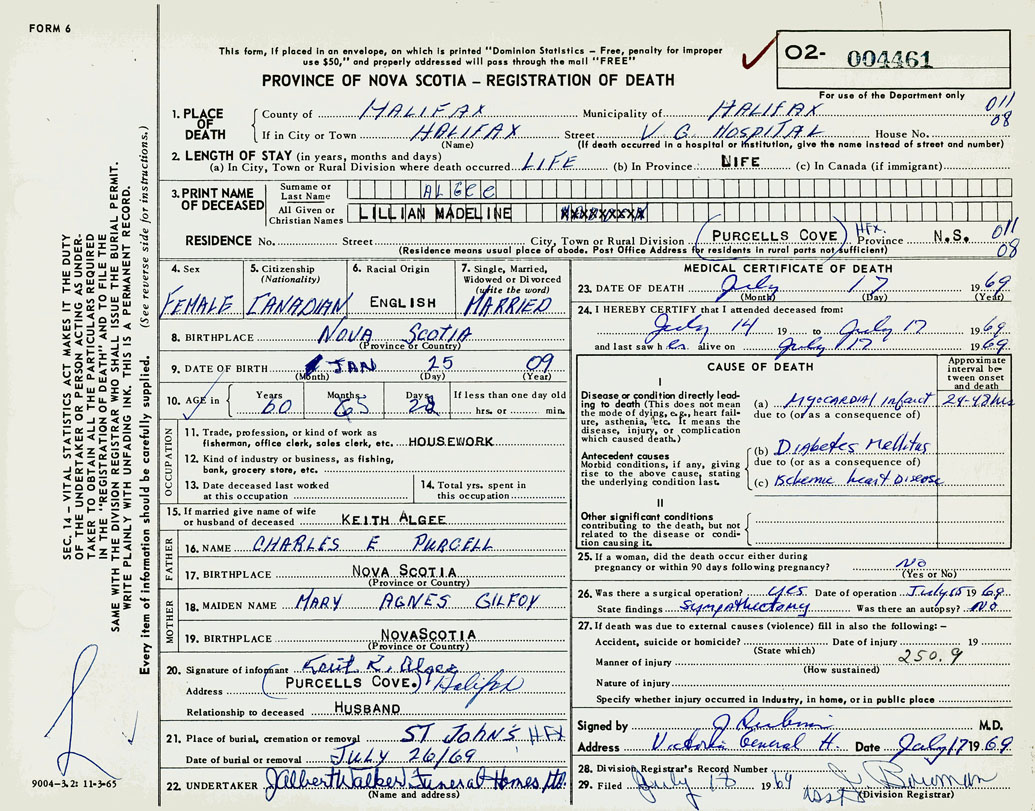 FORM 6
This form, if placed in an envelope, on which is printed "Dominion Statistics – Free, penalty for improper
use $50," and properly addressed will pass through the mail "FREE"
PROVINCE OF NOVA SCOTIA – REGISTRATION OF DEATH
02- 004461
For use of the Department only
011
08
1. PLACE OF DEATH
County of HALIFAX Municipality of HALIFAX
If in City or Town HALIFAX Street V G HOSPITAL House No.
(Name) (If death occurred in a hospital or institution, give the name instead of street and number)
2. LENGTH OF STAY (in years, months and days)
(a) In City, Town or Rural Division where death occurred LIFE (b) In Province LIFE (c) In Canada (if immigrant)
3. PRINT NAME OF DECEASED
Surname or Last Name ALGEE
All Given or Christian Names LILLIAN MADELINE
RESIDENCE No. Street City, Town or Rural Division PURCELLS COVE HFX. Province N.S. 011
(Residence means usual place of abode. Post Office Address for residents in rural parts not sufficient) 08
4. Sex FEMALE
5. Citizenship (Nationality) CANADIAN
6. Racial Origin ENGLISH
7. Single, Married, Widowed or Divorced (write the word) MARRIED
8. BIRTHPLACE NOVA SCOTIA
(Province or Country)
9. DATE OF BIRTH JAN 25 09
(Month) (Day) (Year)
10. AGE in Years 60 Months Days If less than one day old hrs. or min.
OCCUPATION
11. Trade, profession, or kind of work as
fisherman, office clerk, sales clerk, etc. HOUSEWORK
12. Kind of industry or business, as fishing,
bank, grocery store, etc.
13. Date deceased last worked
at this occupation
14. Total yrs. spent in
this occupation
15. If married give name of wife
or husband of deceased KEITH ALGEE
FATHER
16. NAME CHARLES E PURCELL
17. BIRTHPLACE NOVA SCOTIA
(Province or Country)
MOTHER
18. MAIDEN NAME MARY AGNES GILFOY
19. BIRTHPLACE NOVA SCOTIA
(Province or Country)
20. Signature of informant Algee
Address (PURCELLS COVE.) Halifax
Relationship to deceased HUSBAND
21. Place of burial, cremation or removal ST JOHN'S HFX
Date of burial or removal JULY 26/69
22. UNDERTAKER Walker Funeral Homes Ltd.
(Name and address)
MEDICAL CERTIFICATE OF DEATH
23. DATE OF DEATH July 17 1969
(Month) (Day) (Year)
24. I HEREBY CERTIFY that I attended deceased from:
July 14 19 to July 17 1969
and last saw her alive on July 17 1969
CAUSE OF DEATH
Approximate interval between onset and death
I
Disease or condition directly leading to death (This does not mean
the mode of dying, e.g., heart failure, asthenia, etc. It means the
disease, injury, or complication
which caused death.)
(a) Myocardial infarct 24-48 hrs
due to (or as a consequence of)
Antecedent causes
Morbid conditions, if any, giving
rise to the above cause, stating
the underlying condition last.
(b) Diabetes Mellitus
due to (or as a consequence of)
(c) Ischemic heart Disease
II
Other significant conditions
contributing to the death, but not
related to the disease or condition causing it.
25. If a woman, did the death occur either during
pregnancy or within 90 days following pregnancy? NO
(Yes or No)
26. Was there a surgical operation? yes. Date of operation July 15 1969
State findings Sympathectomy Was there an autopsy? NO
27. If death was due to external causes (violence) fill in also the following: –
Accident, suicide or homicide? Date of injury 19
(State which)
Manner of injury 250.9
(How sustained)
Nature of injury
Specify whether injury occurred in industry, in home, or in public place
Signed by M.D.
Address Victoria General H. Date July 17 1969
28. Division Registrar's Record Number
29. Filed July 18 1969 Bowman
(Division Registrar)
SEC. 14 – VITAL STATISTICS ACT MAKES IT THE DUTY
OF THE UNDERTAKER OR PERSON ACTING AS UNDER-
TAKER TO OBTAIN ALL THE PARTICULARS REQUIRED
IN THE "REGISTRATION OF DEATH" AND TO FILE THE
SAME WITH THE DIVISION REGISTRAR WHO SHALL ISSUE THE BURIAL PERMIT.
WRITE PLAINLY WITH UNFADING INK. THIS IS A PERMANENT RECORD.
Every item of information should be carefully supplied. (See reverse side for instructions.)
9004-3.2: 11-3-65